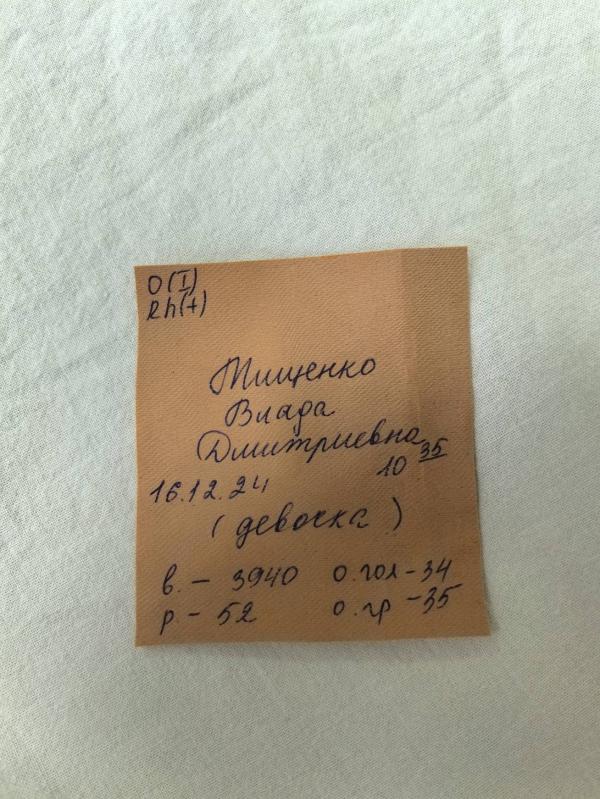 O(I)
Rh(+)
Мищенко
Влада
Дмитриевна
16.12.24 10 35
(девочка)
в. – 3940 о.гол – 34
р – 52 о.гр – 35